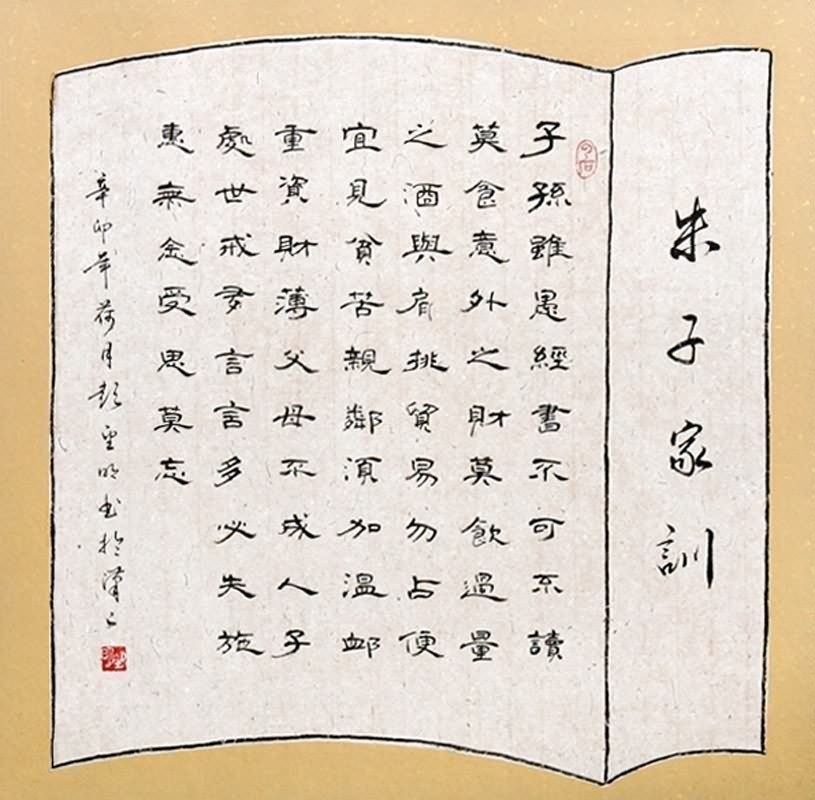 朱子家訓
子孫雖愚經書不可不讀
莫食意外之財莫飲過量
之酒與肩挑貿易勿占便
宜見貧苦親鄰須加溫卹
重資財薄父母不成人子
處世戒多言言多必失施
惠無念受恩莫忘
辛卯年荷月彭明书於漢上